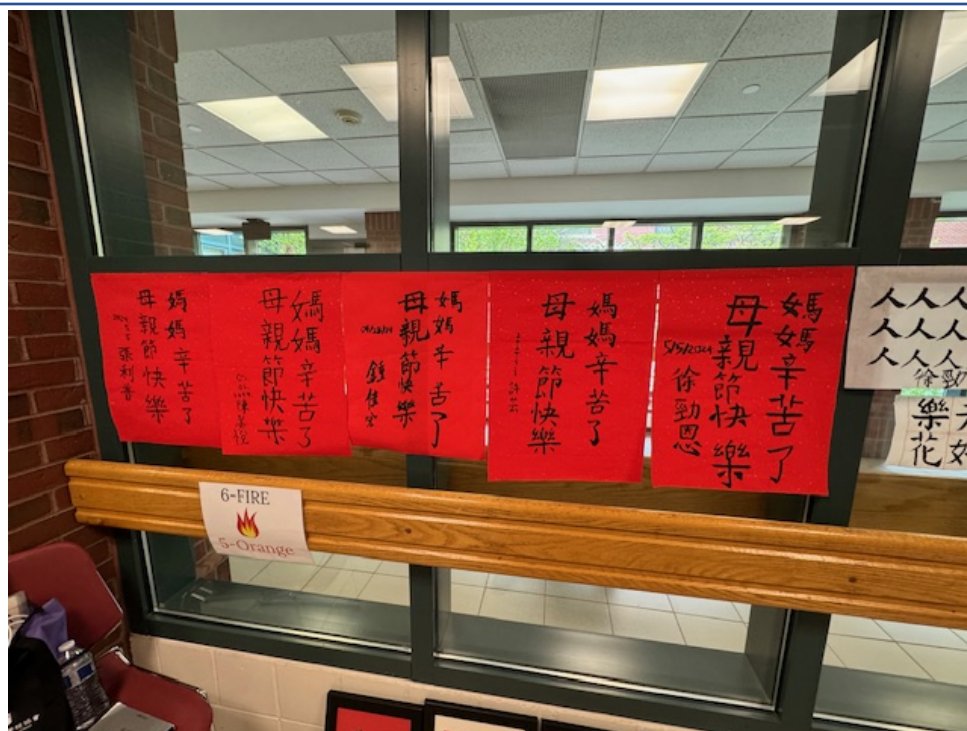 媽媽辛苦了
母親節快樂
張利香
媽媽辛苦了
母親節快樂
媽媽辛苦了
母親節快樂
媽媽辛苦了
母親節快樂
媽媽辛苦了
母親節快樂
5/5/2024
徐勁恩
人人人
人人人
人人人
徐勁
樂
花
6-FIRE
5-Orange